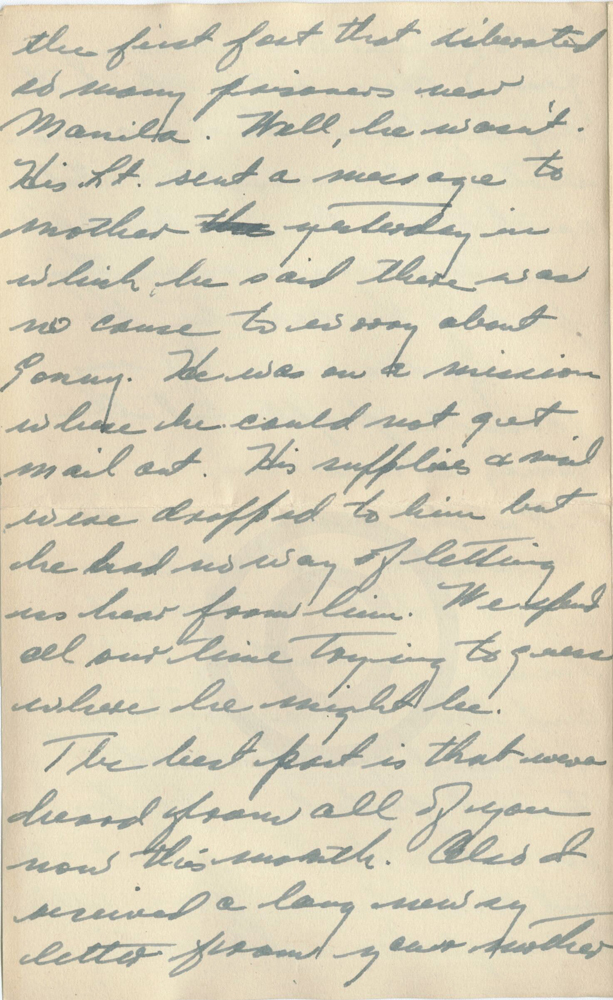 the first fort that liberated
so many prisoners near
Manila. Well, he wasn't.
His Lt. sent a message to
mother the yesterday in
which he said there was
no cause to worry about
Sonny. He was on a mission
where he could not get
mail out. His supplies & mail
were dropped to him but
he had no way of letting
us hear from him. We spend
all our time trying to guess
where he might be.
The best part is that weve
heard from all of you
now this month. Also I
received a long newsy
letter from your mother